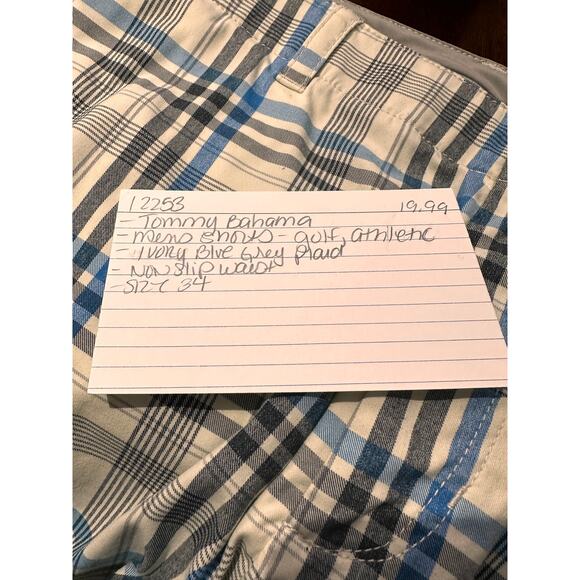 12253 19.99
- Tommy Bahama
- mens shorts - golf, athletic
- Ivory Blue Grey Plaid
- Non slip waist
- Size 34